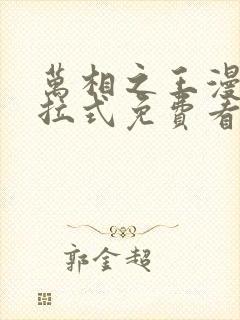 萬相之王漫
拉式免費看
郭金超